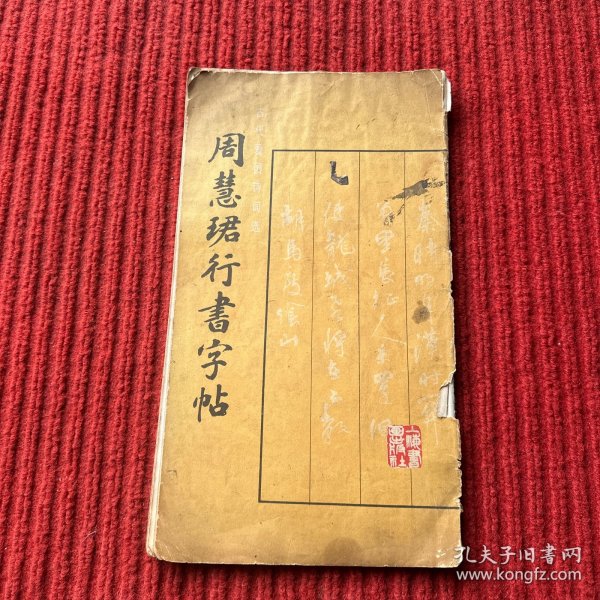 秦時明月漢時關
萬里長征人未還但
使龍城飛將在不教
胡馬度陰山
古代爱国诗词选
周慧珺行書字帖
上海書
孔夫子旧书网
www.kongfz.com